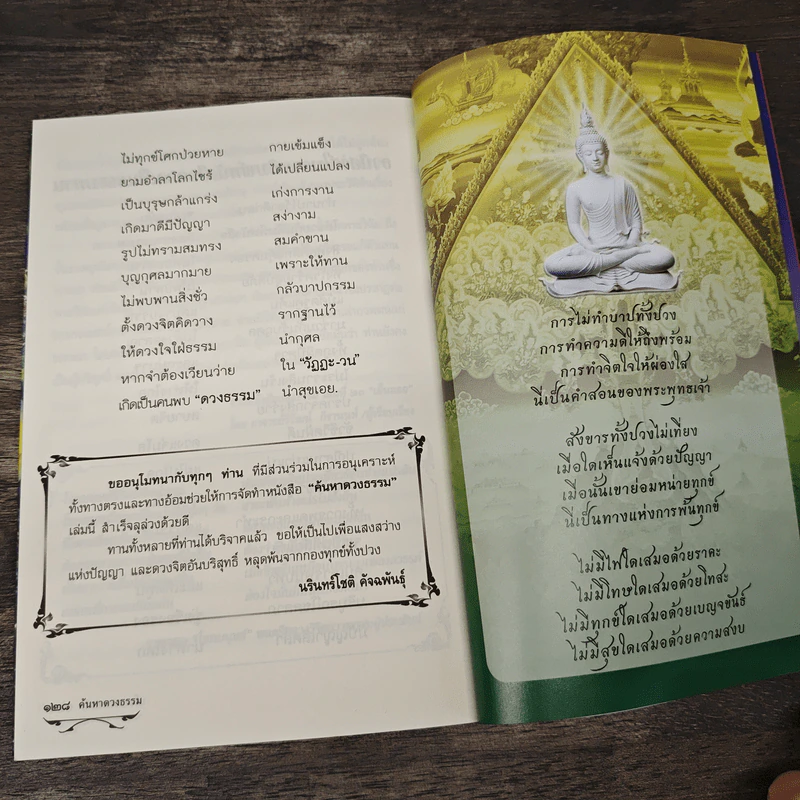 ไม่ทุกข์โศกป่วยหาย กายเข้มแข็ง
ยามอำลาโลกไซร้ ได้เปลี่ยนแปลง
เป็นบุรุษกล้าแกร่ง เก่งการงาน
เกิดมาดีมีปัญญา สง่างาม
รูปไม่ทรามสมทรง สมคำขาน
บุญกุศลมากมาย เพราะให้ทาน
ไม่พบพานสิ่งชั่ว กลัวบาปกรรม
ตั้งดวงจิตคิดวาง รากฐานไว้
ให้ดวงใจใฝ่ธรรม นำกุศล
หากจำต้องเวียนว่าย ใน “วัฏฏะ-วน”
เกิดเป็นคนพบ “ดวงธรรม” นำสุขเอย.
ขออนุโมทนากับทุกๆ ท่าน ที่มีส่วนร่วมในการอนุเคราะห์
ทั้งทางตรงและทางอ้อมช่วยให้การจัดทำหนังสือ “ค้นหาดวงธรรม”
เล่มนี้ สำเร็จลุล่วงด้วยดี
ทานทั้งหลายที่ท่านได้บริจาคแล้ว ขอให้เป็นไปเพื่อแสงสว่าง
แห่งปัญญา และดวงจิตอันบริสุทธิ์ หลุดพ้นจากกองทุกข์ทั้งปวง
นรินทร์โชติ คัจฉพันธุ์
๑๒๘ ค้นหาดวงธรรม
การไม่ทำบาปทั้งปวง
การทำความดีให้ถึงพร้อม
การทำจิตใจให้ผ่องใส
นี่เป็นคำสอนของพระพุทธเจ้า
สังขารทั้งปวงไม่เที่ยง
เมื่อใดเห็นแจ้งด้วยปัญญา
เมื่อนั้นเขาย่อมหน่ายทุกข์
นี่เป็นทางแห่งการพ้นทุกข์
ไม่มีไฟใดเสมอด้วยราคะ
ไม่มีโทษใดเสมอด้วยโทสะ
ไม่มีทุกข์ใดเสมอด้วยเบญจขันธ์
ไม่มีสุขใดเสมอด้วยความสงบ